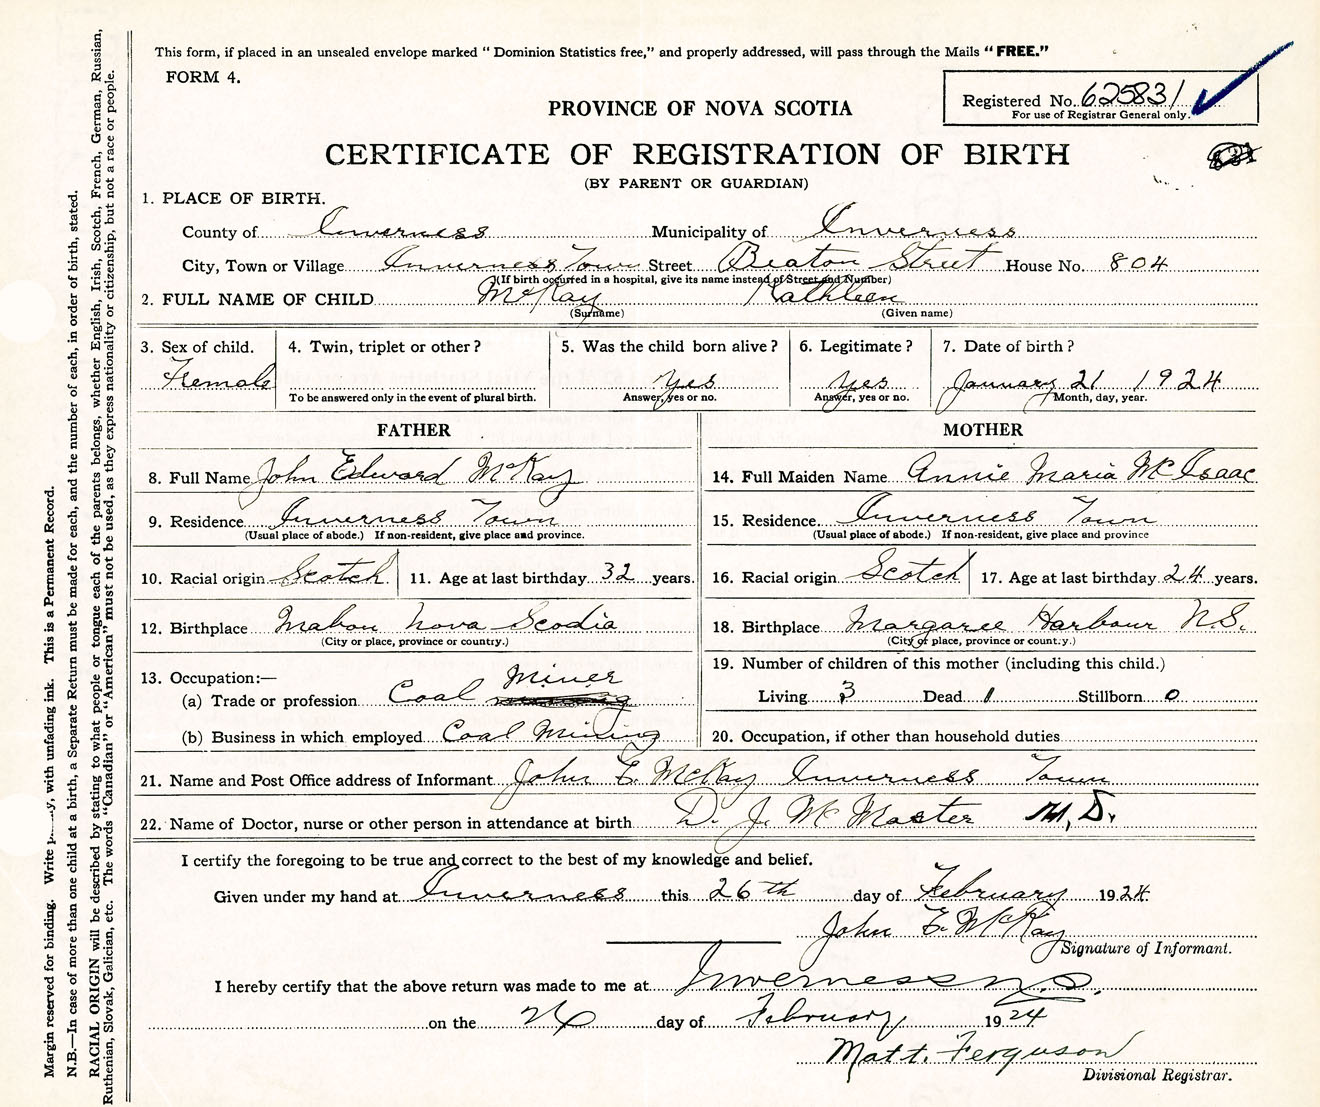 This form, if placed in an unsealed envelope marked " Dominion Statistics free," and properly addressed, will pass through the Mails "FREE."
FORM 4.
Registered No. 62583/
For use of Registrar General only.
PROVINCE OF NOVA SCOTIA
CERTIFICATE OF REGISTRATION OF BIRTH
(BY PARENT OR GUARDIAN)
1. PLACE OF BIRTH.
County of Inverness Municipality of Inverness
City, Town or Village Inverness Town Street Beaton Street House No. 804
(If birth occurred in a hospital, give its name instead of Street and Number)
2. FULL NAME OF CHILD McKay Kathleen
(Surname) (Given name)
3. Sex of child. 4. Twin, triplet or other? 5. Was the child born alive? 6. Legitimate? 7. Date of birth?
Female Yes Yes January 21 1924
To be answered only in the event of plural birth. Answer, yes or no. Answer, yes or no. Month, day, year.
FATHER MOTHER
8. Full Name John Edward McKay 14. Full Maiden Name Annie Maria McIsaac
9. Residence Inverness Town 15. Residence Inverness Town
(Usual place of abode.) If non-resident, give place and province. (Usual place of abode.) If non-resident, give place and province
10. Racial origin Scotch 11. Age at last birthday 32 years. 16. Racial origin Scotch 17. Age at last birthday 24 years.
12. Birthplace Mabou Nova Scodia 18. Birthplace Margaree Harbour N.S.
(City or place, province or country.) (City or place, province or count.y.)
13. Occupation:— 19. Number of children of this mother (including this child.)
Miner
(a) Trade or profession Coal Living 3 Dead 1 Stillborn 0
(b) Business in which employed Coal Mining 20. Occupation, if other than household duties
21. Name and Post Office address of Informant John E. McKay Inverness Town
22. Name of Doctor, nurse or other person in attendance at birth D. J. McMaster M,D.
I certify the foregoing to be true and correct to the best of my knowledge and belief.
Given under my hand at Inverness this 26th day of February 1924.
John E. McKay
Signature of Informant.
I hereby certify that the above return was made to me at Inverness N.S.
on the 26 day of February 1924
Matt. Ferguson
Divisional Registrar.
Margin reserved for binding. Write with unfading ink. This is a Permanent Record.
N.B.—In case of more than one child at a birth, a Separate Return must be made for each, and the number of each, in order of birth, stated.
RACIAL ORIGIN will be described by stating to what people or tongue each of the parents belongs, whether English, Irish, Scotch, French, German, Russian,
Ruthenian, Slovak, Galician, etc. The words "Canadian" or "American" must not be used, as they express nationality or citizenship, but not a race or people.